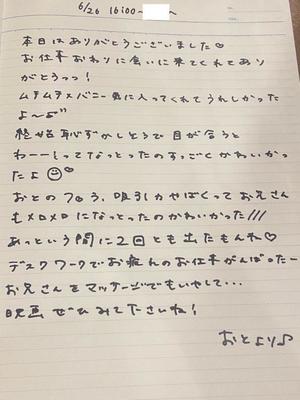 6/26 16:00〜
本日はありがとうございました♡
お仕事おわりに会いに来てくれてあり
がとうっっ!
ムチムチメバニー気に入ってくれてうれしかった
よ〜♂"
終始恥ずかしそうで目が合うと
わーーってなっとったのすっごくかわいかっ
たよ☺♡
おとのフロう、吸引力やばくってお兄さん
もメロメロになっとったのかわいかった!!!
あっという間に2回とも出たもんね♡
デスクワークでお疲れのお仕事がんばったー
お兄さんをマッサージでもいやして...
映画ぜひみてくださいね!
おとより♪